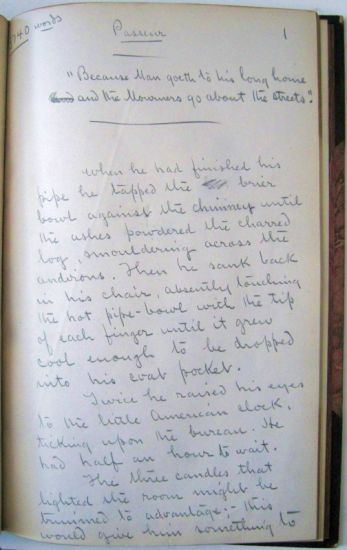 3740 words
Passeur 1
"Because Man goeth to his long home
and the Mourners go about the streets".
When he had finished his
pipe he tapped the brier
bowl against the chimney until
the ashes powdered the charred
log, smouldering across the
andirons. Then he sank back
in his chair, absently touching
the hot pipe-bowl with the tip
of each finger until it grew
cool enough to be dropped
into his coat pocket.
Twice he raised his eyes
to the little American clock,
ticking upon the bureau. He
had half an hour to wait.
The three candles that
lighted the room might be
trimmed to advantage; - this
would give him something to